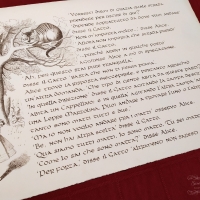 "Potresti dirmi di quale quale strada
prendere per uscire di qui?"
"Dipende soprattutto da dove vuoi andare"
disse il Gatto.
"Non mi importa molto..." disse Alice.
"Allora non importa che strada prendi"
disse il Gatto.
"...purché arrivi in qualche posto"
aggiunse Alice a mo' di spiegazione.
"Ah, per questo stai pure tranquilla"
disse il Gatto "basta che non ti fermi prima".
Alice trovò la risposta ineccepibile, e pertanto azzardò
un'altra domanda. "Che tipo di gente abita da queste parti?"
"In quella direzione" disse il Gatto agitando la zampa destra
"abita un Cappellaio e in quella" agitando l'altra zampa "abita
una Lepre Marzolina. Puoi andare a trovare l'uno o l'altra
tanto sono matti tutti e due".
"Ma io non voglio andare fra i matti" osservò Alice.
"Be', non hai altra scelta" disse il Gatto.
"Qua siamo tutti matti. Io sono matto. Tu sei matta"
"Come lo sai che sono matta?" disse Alice.
"Per forza," disse il Gatto "altrimenti non saresti